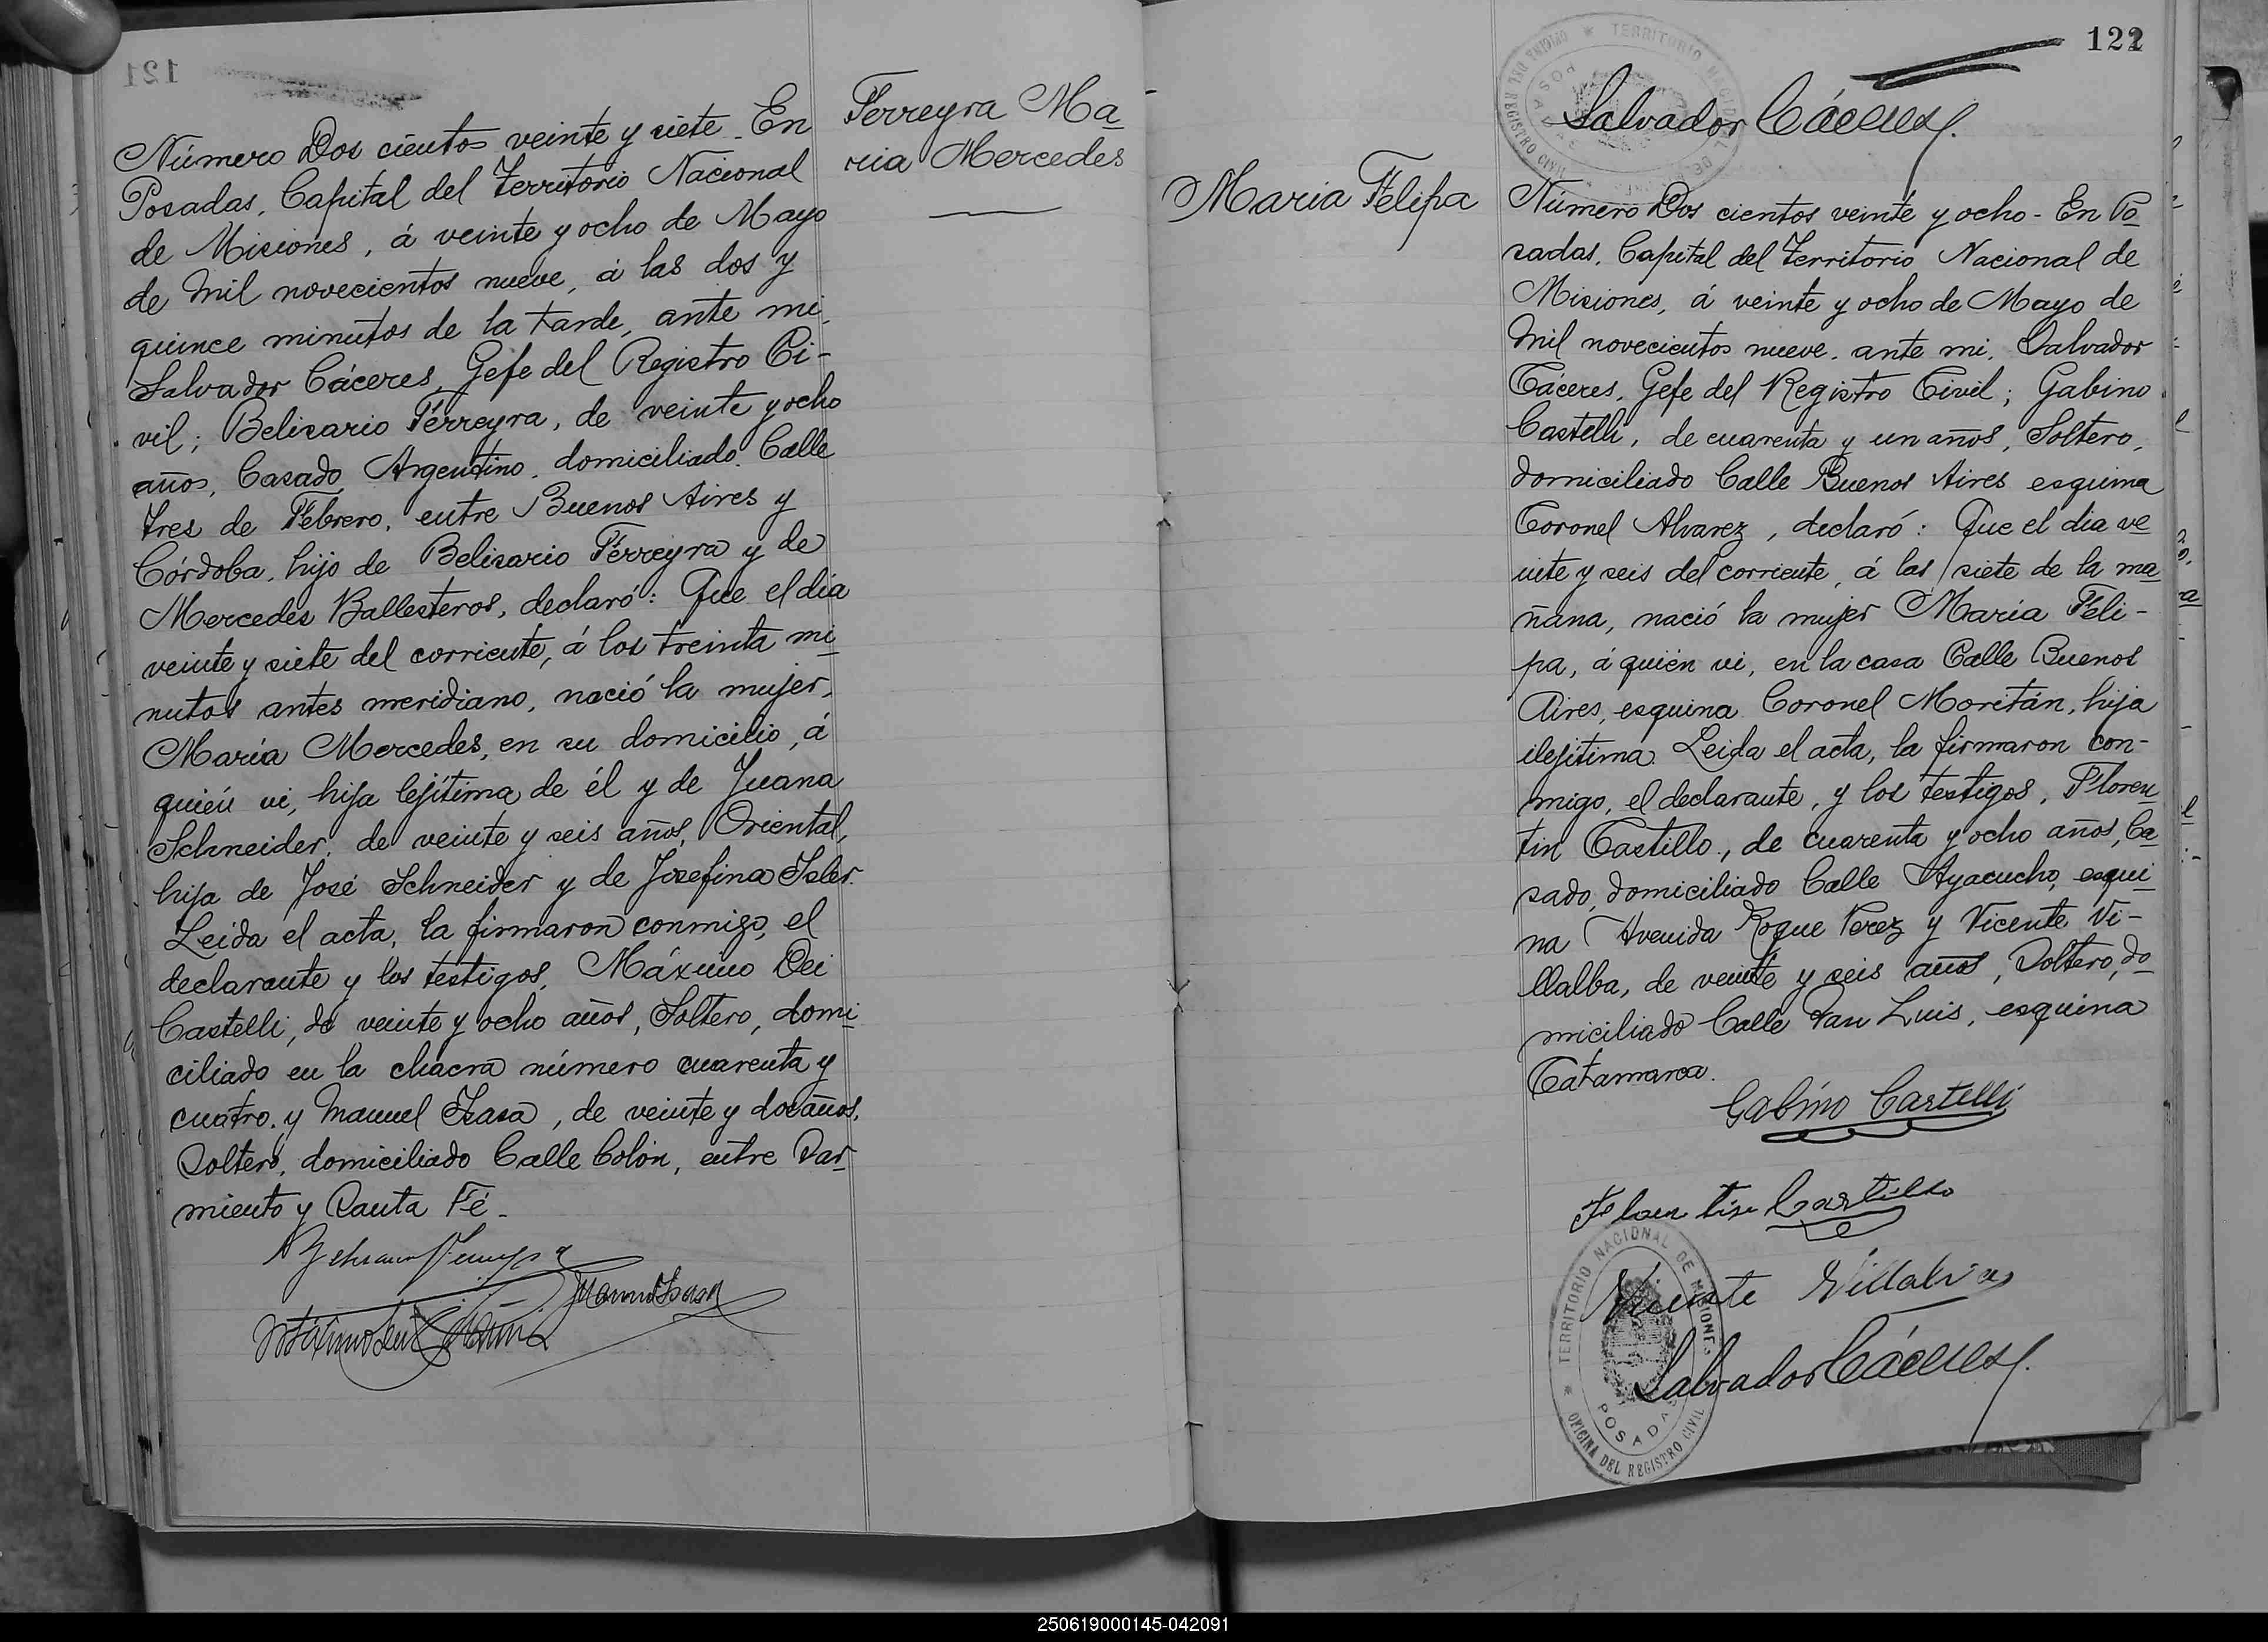 121
Ferreyra Ma
ria Mercedes
Número Dos cientos veinte y siete. En
Posadas, Capital del Territorio Nacional
de Misiones, á veinte y ocho de Mayo
de Mil novecientos nueve, á las dos y
quince minutos de la tarde, ante mi,
Salvador Cáceres, Gefe del Registro Ci-
vil; Belisario Ferreyra, de veinte y ocho
años, Casado, Argentino, domiciliado Calle
Tres de Febrero, entre Buenos Aires y
Córdoba, hijo de Belisario Ferreyra y de
Mercedes Ballesteros, declaró: Que el dia
veinte y siete del corriente, á los treinta mi
nutos antes meridiano, nació la mujer,
María Mercedes, en su domicilio, á
quién vi, hija lejítima de él y de Juana
Schneider, de veinte y seis años, Oriental,
hija de José Schneider y de Josefina Isler.
Leida el acta, la firmaron conmigo, el
declarante y los testigos, Máximo Dei
Castelli, de veinte y ocho años, Soltero, domi
ciliado en la chacra número cuarenta y
cuatro, y Manuel Isasa, de veinte y dos años,
Soltero, domiciliado Calle Colón, entre Sar
miento y Santa Fé.
Manuel Isasa
122
TERRITORIO NACIONAL DE MISIONES
OFICINA DEL REGISTRO CIVIL
POSADAS
Salvador Cáceres
Maria Felipa
Número Dos cientos veinte y ocho - En Po
sadas, Capital del Territorio Nacional de
Misiones, á veinte y ocho de Mayo de
Mil novecientos nueve, ante mi, Salvador
Cáceres, Gefe del Registro Civil; Gabino
Castelli, de cuarenta y un años, Soltero,
domiciliado Calle Buenos Aires esquina
Coronel Alvarez, declaró: Que el dia ve
inte y seis del corriente, á las siete de la ma
ñana, nació la mujer María Feli-
pa, á quién vi, en la casa Calle Buenos
Aires, esquina Coronel Moritán, hija
ilejítima. Leida el acta, la firmaron con-
migo, el declarante, y los testigos, Floren
tin Castillo, de cuarenta y ocho años, Ca
sado, domiciliado Calle Ayacucho, esqui
na Avenida Roque Perez y Vicente Vi-
llalba, de veinte y seis años, Soltero, do
miciliado Calle San Luis, esquina
Catamarca.
Gabino Castelli
Florentin Castillo
Vicente Villalva
Salvador Cáceres
TERRITORIO NACIONAL DE MISIONES
OFICINA DEL REGISTRO CIVIL
POSADAS
250619000145-042091